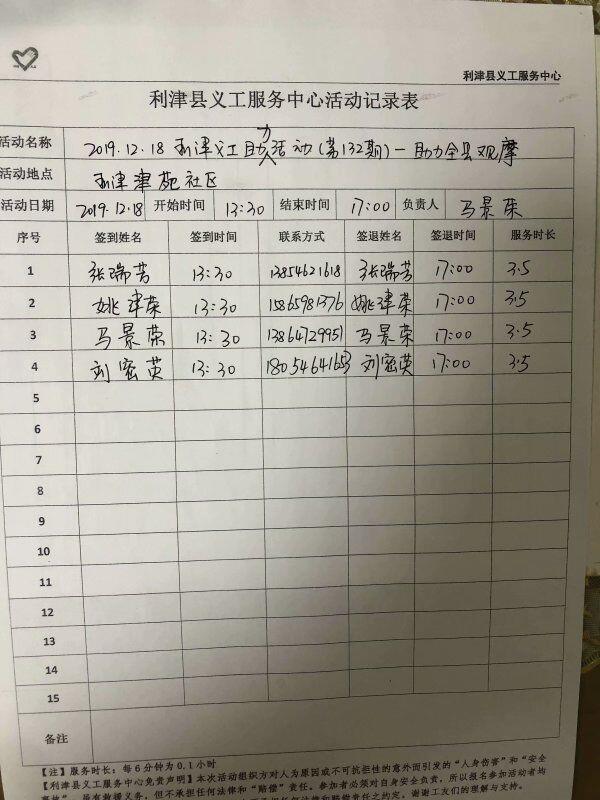 利津县义工服务中心
利津县义工服务中心活动记录表
活动名称 2019.12.18 利津义工助力活动(第132期)—助力全县观摩
活动地点 利津津苑社区
活动日期 2019.12.18 开始时间 13:30 结束时间 17:00 负责人 马景荣
序号 签到姓名 签到时间 联系方式 签退姓名 签退时间 服务时长
1 张瑞芳 13:30 13854621618 张瑞芳 17:00 3.5
2 姚建荣 13:30 15865981376 姚建荣 17:00 3.5
3 马景荣 13:30 13864729951 马景荣 17:00 3.5
4 刘密英 13:30 18054641653 刘密英 17:00 3.5
5
6
7
8
9
10
11
12
13
14
15
备注
【注】服务时长:每6分钟为0.1小时
【利津县义工服务中心免责声明】本次活动组织方对人为原因或不可抗拒性的意外而引发的“人身伤害”和“安全
虽有救援义务,但不承担任何法律和“赔偿”责任。参加者必须对自身安全负责,所以报名参加活动者均
谢谢工友们的理解与支持。